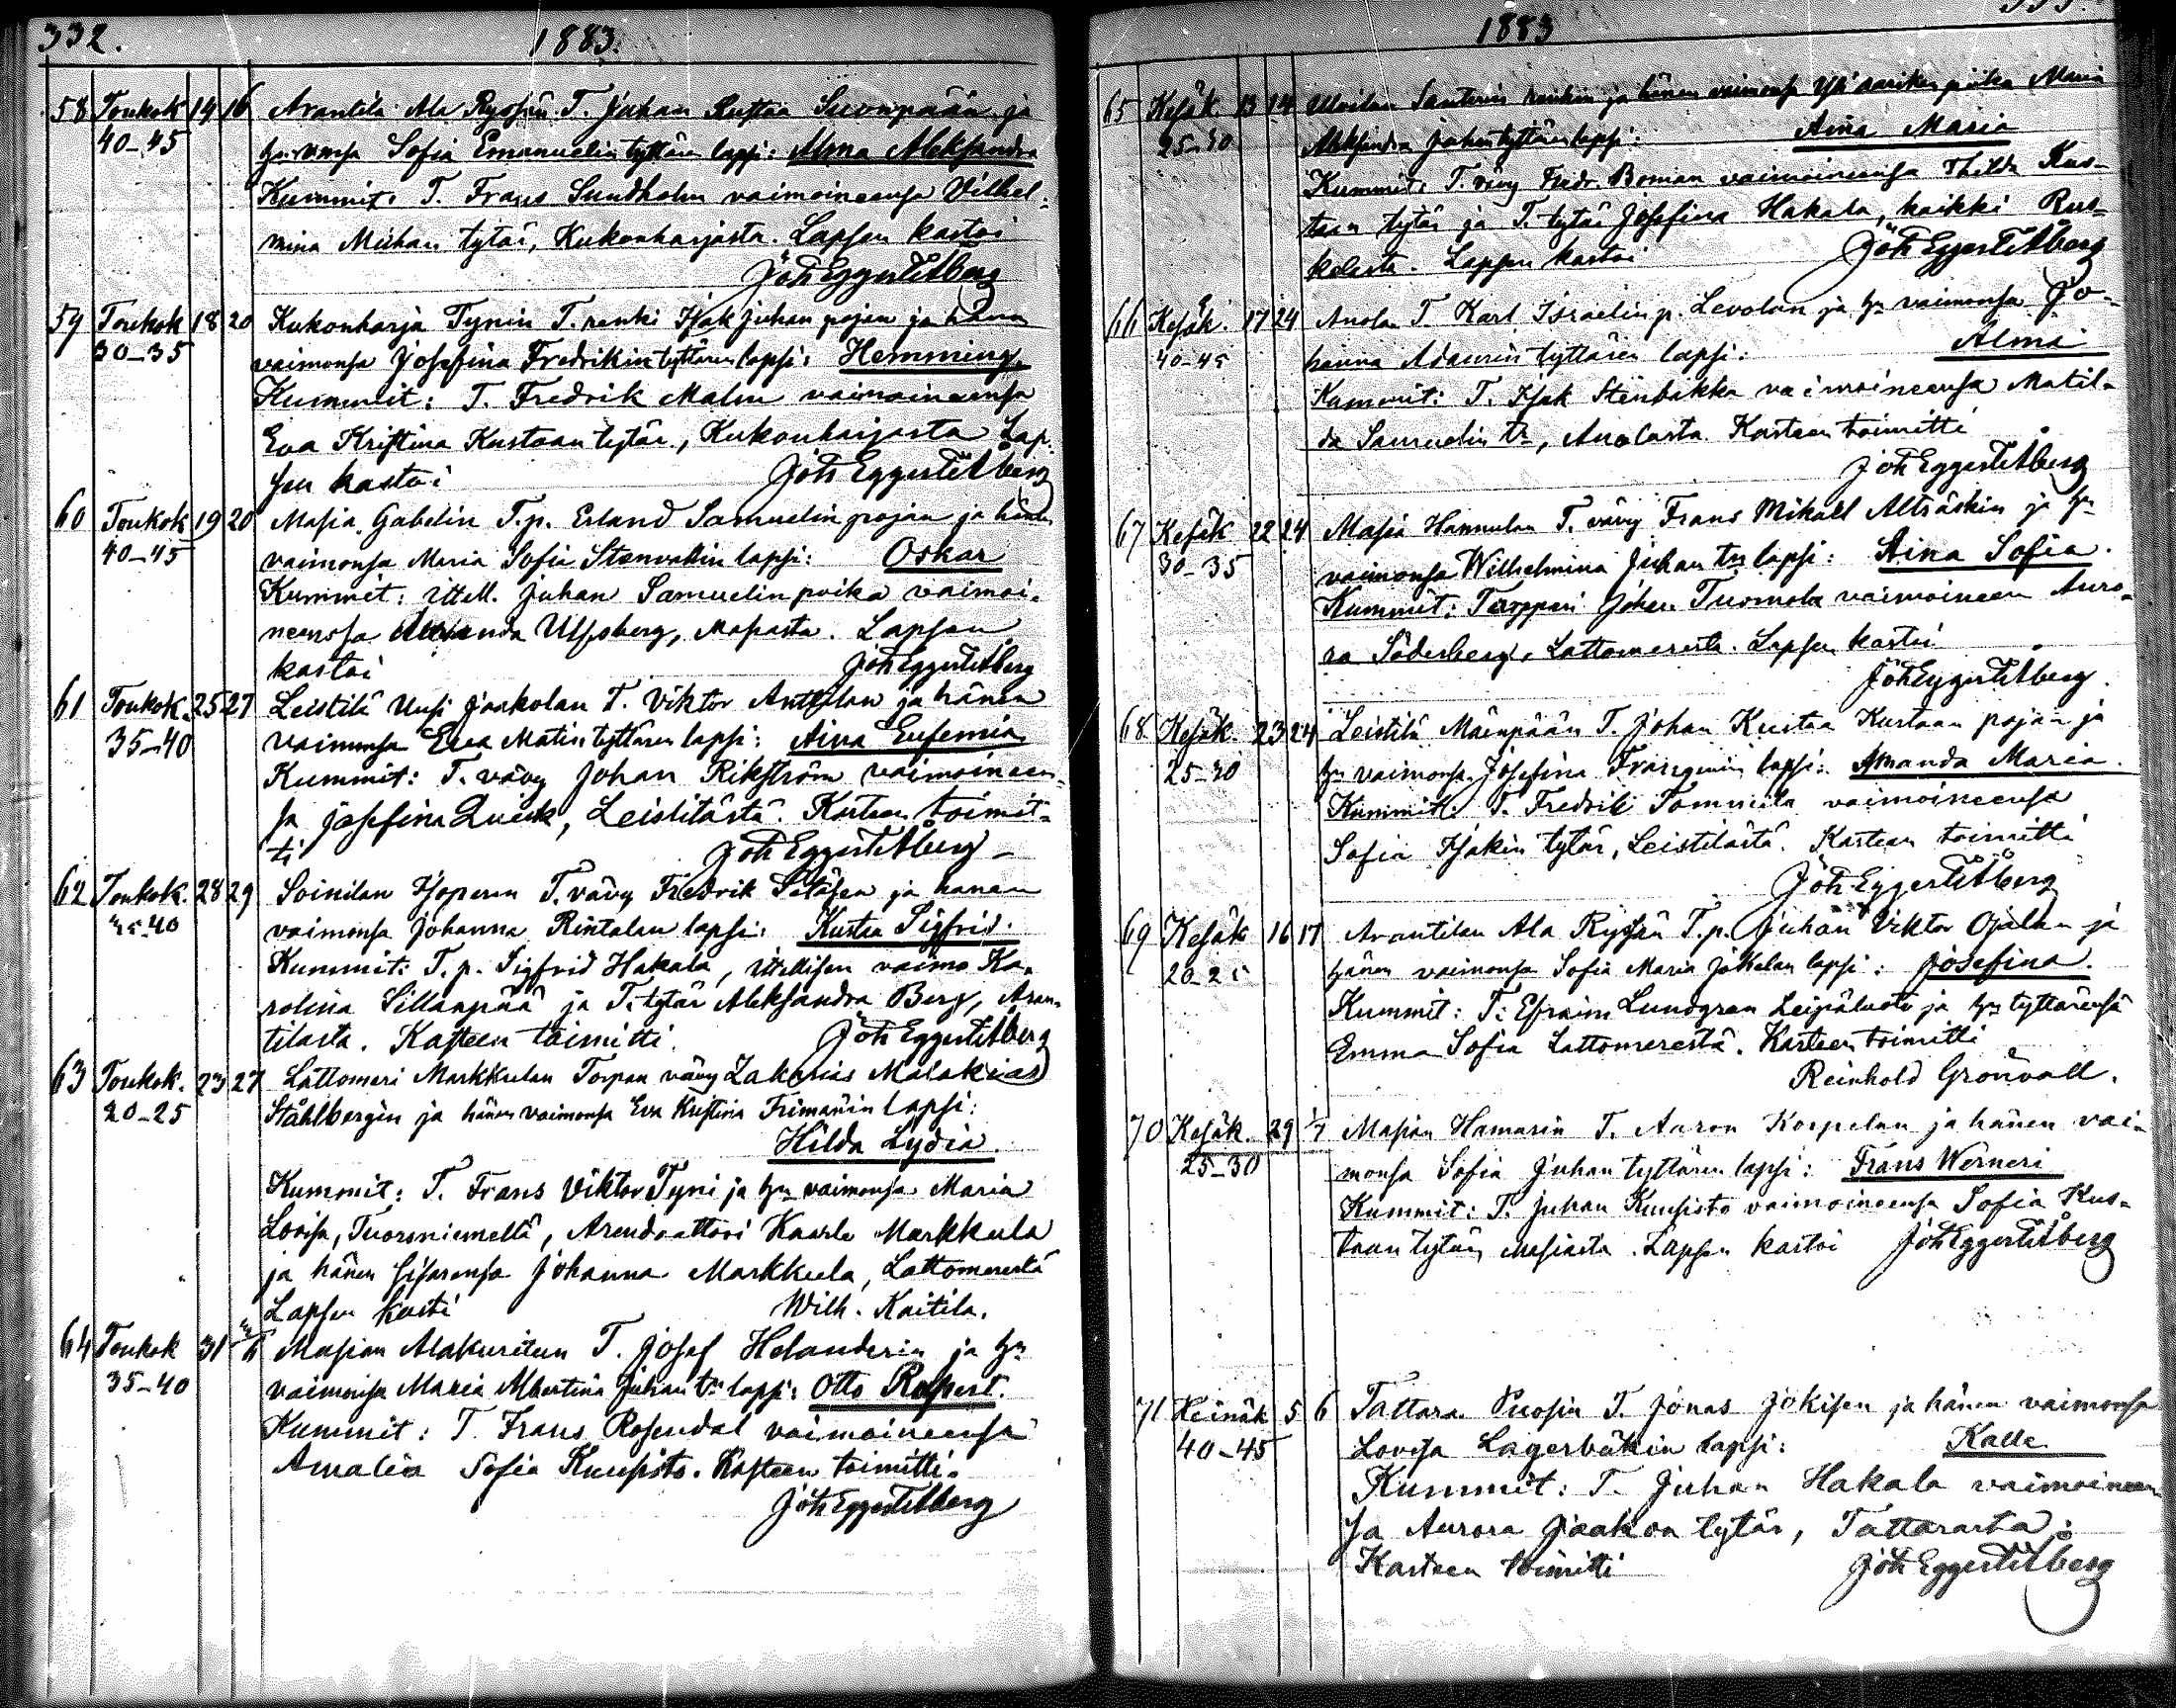 332.
1883.
58 Toukok 14 16 Arantila Ala Ryssän T. Juhan Kustaa Suonpään ja
40-45 hn vmsa Sofia Emanuelin tyttären lapsi: Alma Aleksandra
Kummit: T. Frans Sundholm vaimoineensa Vilhel-
mina Mihan tytär, Kukonharjasta. Lapsen kastoi
Joh Eggert Elberg
59 Toukok 18 20 Kukonharja Tynin T. renki Isak Juhan pojan ja hänen
30-35 vaimonsa Josefina Fredrikin tyttären lapsi: Hemming.
Kummit: T. Fredrik Malm vaimoineensa
Eva Kristina Kustaan tytär, Kukonharjasta Lap-
sen kastoi Joh Eggert Elberg
60 Toukok 19 20 Masia Gabelin T.p. Erland Samuelin pojan ja hänen
40-45 vaimonsa Maria Sofia Stenvallin lapsi: Oskar
Kummit: Ittell. Juhan Samuelin poika vaimoi-
neensa Ulfsberg, Masiasta. Lapsen
kastoi Joh Eggert Elberg
61 Toukok. 25 27 Leistilä Uusi Jaakolan T. Viktor Anttilan ja hänen
35-40 vaimonsa Eva Matin tyttären lapsi: Aina Eufemia
Kummit: T. vävy Johan Rikström vaimoineen-
sa Josefina Quick, Leistilästä. Kasteen toimit-
ti Joh Eggert Elberg
62 Toukok. 28 29 Soinilan T. vävy Fredrik ja hänen
35-40 vaimonsa Johanna Rintalan lapsi: Kustaa Sigfrid.
Kummit: T.p. Sigfrid Hakala, Ittellisen vaimo Ka-
rolina Sillanpää ja T. tytär Aleksandra Berg, Aran-
tilasta. Kasteen toimitti. Joh Eggert Elberg
63 Toukok. 23 27 Lattomeri Markkulan Torpan vävy Zakarias Malakias
20-25 Ståhlbergin ja hänen vaimonsa Eva Kristina Frimanin lapsi:
Hilda Lydia.
Kummit: T. Frans Viktor Tyni ja hn vaimonsa Maria
Lovisa, Tuorsniemeltä, Arendaattori Kaarle Markkula
ja hänen sisarensa Johanna Markkula, Lattomerestä
Lapsen kasti Wilh. Kaitila.
64 Toukok 31 Masian Alakuritun T. Josef Helanderin ja hn
35-40 vaimonsa Maria Albertina Juhan tr lapsi: Otto Ropert.
Kummit: T Frans Rosendal vaimoineensa
Amalia Sofia Kuusisto. Kasteen toimitti.
Joh Eggert Elberg
1883
65 Kesäk. 13 24 Santerin renkin ja hänen vaimonsa Maria
25-30 Aleksandra Juhan tyttären lapsi: Aina Maria
Kummit: T. vävy Fredr. Boman vaimoineensa Thilda Kus-
taan tytär ja T. tytär Josefina Hakala, kaikki Rus-
kelasta. Lapsen kastoi Joh Eggert Elberg
66 Kesäk. 17 24 Anolan T. Karl Israelin p. Levolan ja hn vaimonsa Jo-
40-45 hanna Adamin tyttären lapsi: Alma
Kummit: T. Isak Stenbäkka vaimoineensa Matil-
da Samuelin tr, Anolasta. Kasteen toimitti
Joh Eggert Elberg
67 Kesäk 22 24 Masia Hannulan T. vävy Frans Mikael Alträskin ja hn
30-35 vaimonsa Wilhelmina Juhan trn lapsi: Aina Sofia.
Kummit: Torppari Johan Tuomola vaimoineen Auro-
ra Söderberg, Lattomeresta. Lapsen kastoi
Joh Eggert Elberg.
68 Kesäk. 23 24 Leistilä Mäenpään T. Johan Kustaa Kustaan pojan ja
25-30 hn vaimonsa Josefina lapsi: Amanda Maria.
Kummit: T. Fredrik Tommila vaimoineensa
Sofia Isakin tytär, Leistilästä. Kasteen toimitti
Joh Eggert Elberg
69 Kesäk 16 17 Arantilan Ala Ryssän T.p. Juhan Viktor Ojalan ja
20-25 hänen vaimonsa Sofia Maria Jokelan lapsi: Josefina.
Kummit: T. Efraim Lundgran Leipäluoto ja hn tyttärensä
Emma Sofia Lattomerestä. Kasteen toimitti
Reinhold Grönvall.
70 Kesäk. 29 1/7 Masian Hamarin T. Aaron Korpelan ja hänen vai-
25-30 monsa Sofia Juhan tyttären lapsi: Frans Werneri
Kummit: T. Juhan Kuusisto vaimoineensa Sofia Kus-
taan tytär, Masiasta. Lapsen kastoi Joh Eggert Elberg
71 Heinäk 5 6 Tattara T. Jonas Jokisen ja hänen vaimonsa
40-45 Lovisa Lagerbäkin lapsi: Kalle
Kummit: T. Juhan Hakala vaimoineen
sa Aurora Jaakon tytär, Tattarasta.
Kasteen toimitti Joh Eggert Elberg